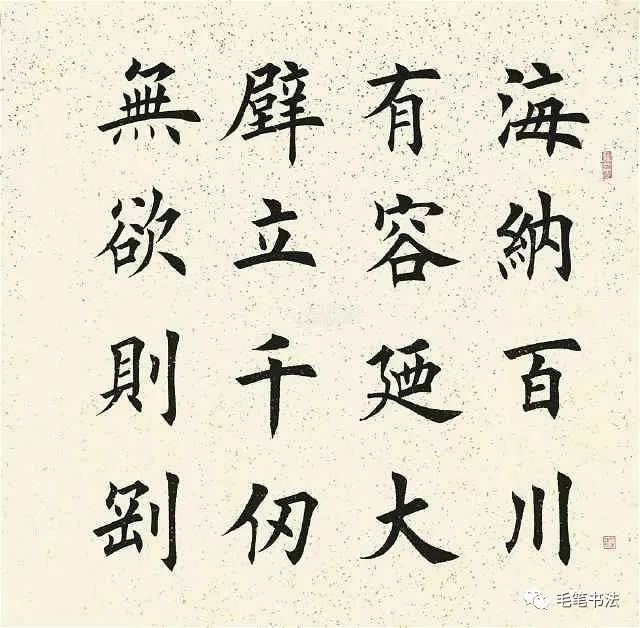 海納百川
有容廼大
壁立千仞
無欲則剛
毛笔书法